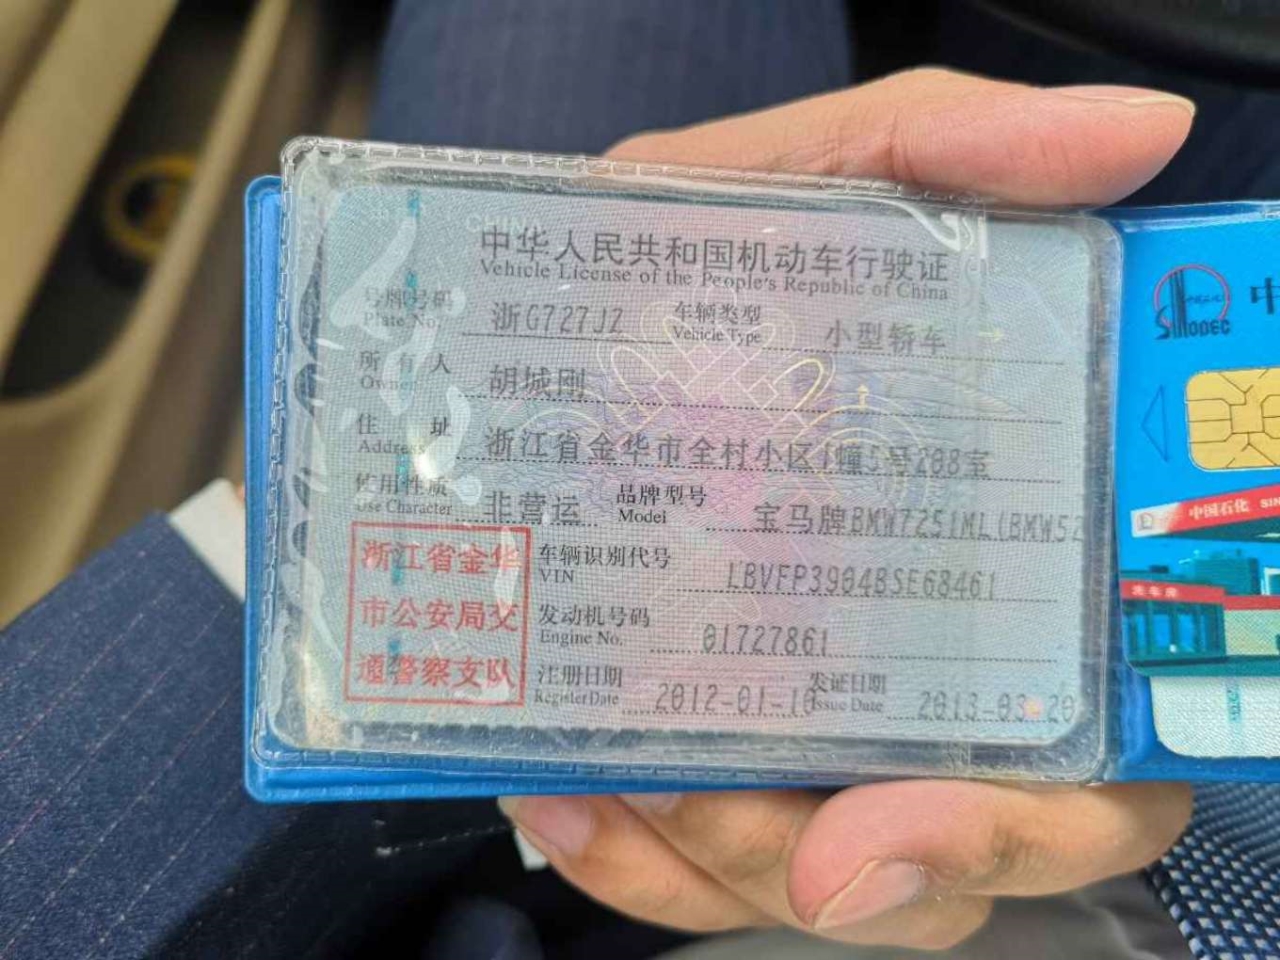 CHINA
中华人民共和国机动车行驶证
Vehicle License of the People's Republic of China
号牌号码 浙G727JZ 车辆类型 小型轿车
Plate No. Vehicle Type
所有人 胡城刚
Owner
住址 浙江省金华市全村小区1幢5号208室
Address
使用性质 非营运 品牌型号 宝马牌BMW7251ML(BMW5
Use Character Model
浙江省金华
市公安局交
通警察支队
车辆识别代号 LBVFP3904BSE68461
VIN
发动机号码 01727861
Engine No.
注册日期 2012-01-10 发证日期 2013-03-20
Register Date Issue Date
SINOPEC
中
中国石化 SIN
洗车房